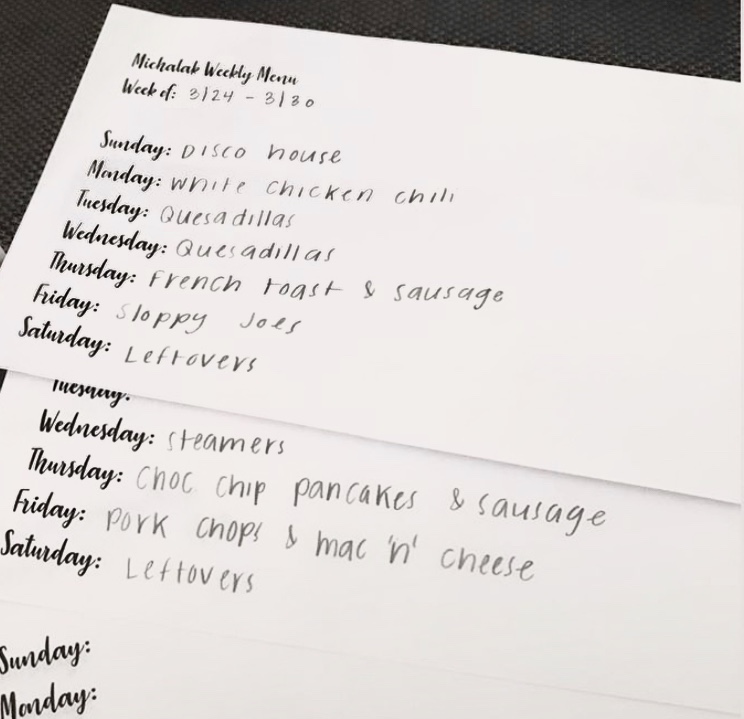 Michalak Weekly Menu
Week of: 3/24 - 3/30
Sunday: Disco house
Monday: White chicken chili
Tuesday: Quesadillas
Wednesday: Quesadillas
Thursday: French toast & sausage
Friday: Sloppy Joes
Saturday: Leftovers
Tuesday:
Wednesday: Steamers
Thursday: Choc chip pancakes & sausage
Friday: Pork chops & mac 'n' cheese
Saturday: Leftovers
Sunday:
Monday: